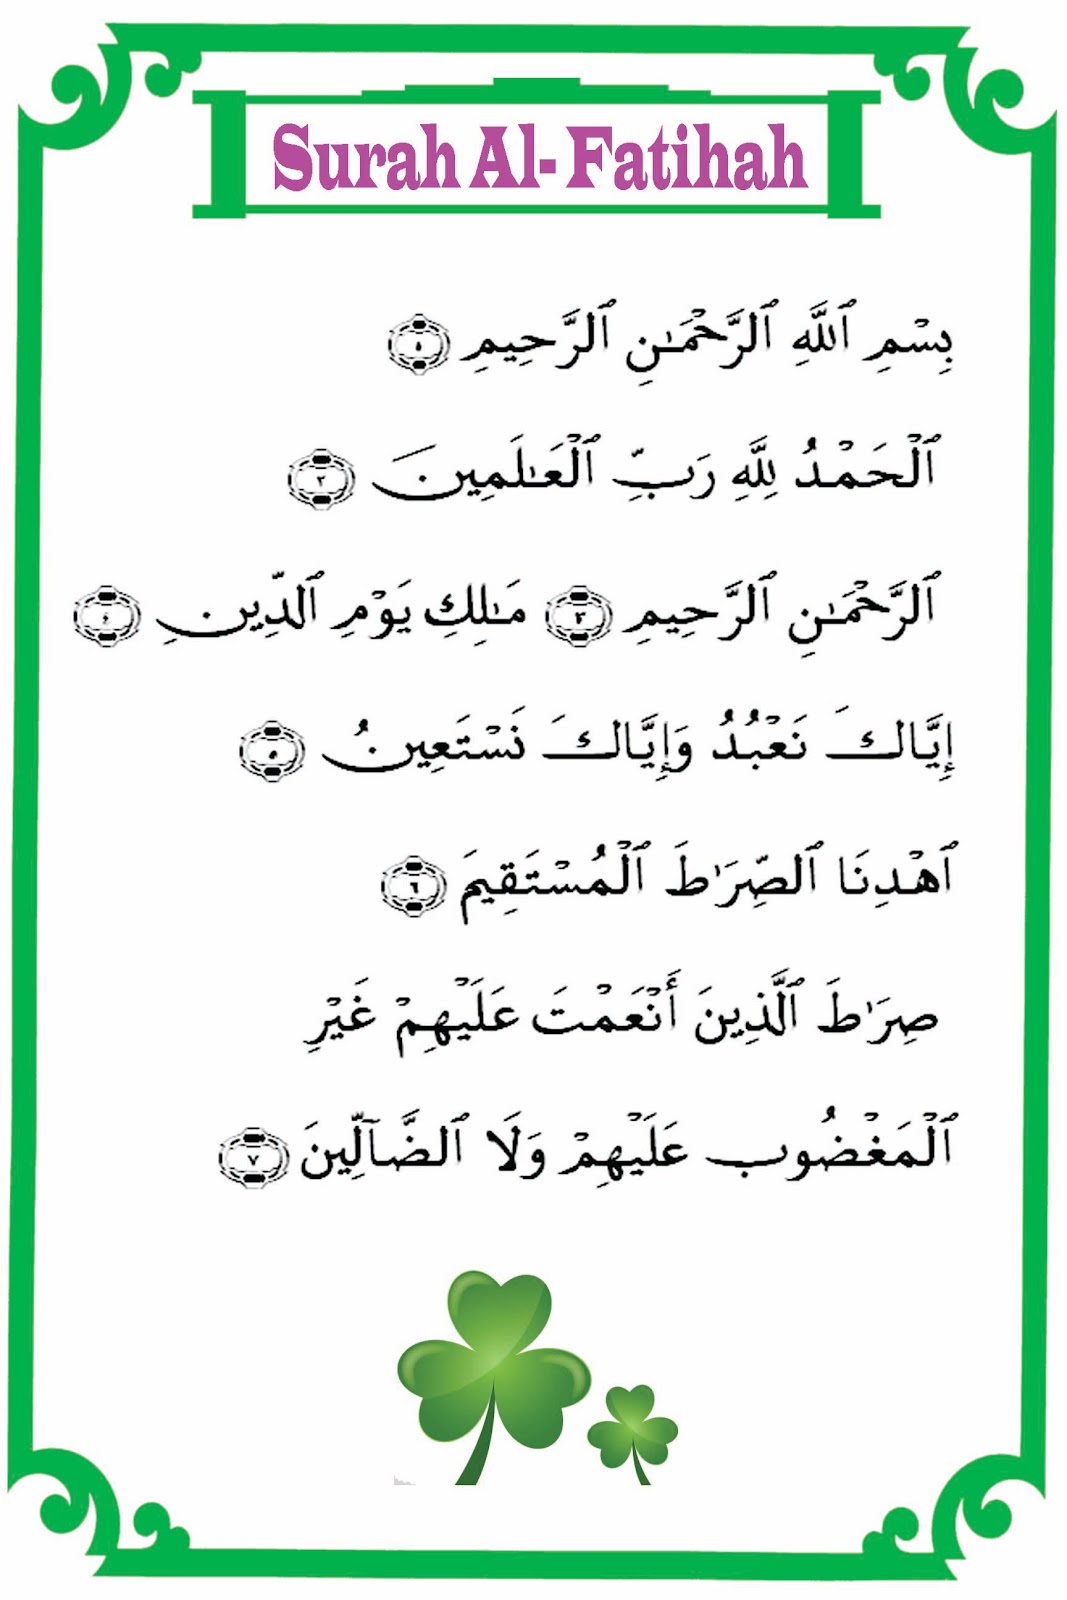 Surah Al-Fatihah
بِسْمِ ٱللَّهِ ٱلرَّحْمَـٰنِ ٱلرَّحِيمِ ٥
ٱلْحَمْدُ لِلَّهِ رَبِّ ٱلْعَـٰلَمِينَ ٢
ٱلرَّحْمَـٰنِ ٱلرَّحِيمِ ٣ مَـٰلِكِ يَوْمِ ٱلدِّينِ ٤
إِيَّاكَ نَعْبُدُ وَإِيَّاكَ نَسْتَعِينُ ٥
ٱهْدِنَا ٱلصِّرَٰطَ ٱلْمُسْتَقِيمَ ٦
صِرَٰطَ ٱلَّذِينَ أَنْعَمْتَ عَلَيْهِمْ غَيْرِ
ٱلْمَغْضُوبِ عَلَيْهِمْ وَلَا ٱلضَّآلِّينَ ٧